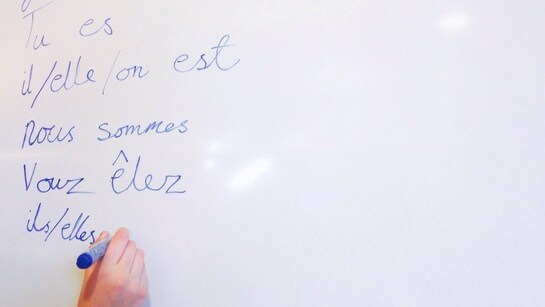 Tu es
il/elle/on est
nous sommes
Vouz êlez
ils/elles